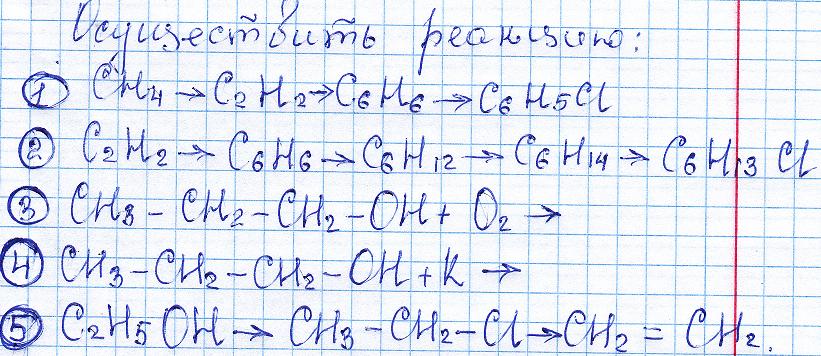 Осуществить реакцию:
① CH₄ → C₂H₂ → C₆H₆ → C₆H₅Cl
② C₂H₂ → C₆H₆ → C₆H₁₂ → C₆H₁₄ → C₆H₁₃Cl
③ CH₃ – CH₂ – CH₂ – OH + O₂ →
④ CH₃ – CH₂ – CH₂ – OH + K →
⑤ C₂H₅OH → CH₃ – CH₂ – Cl → CH₂ = CH₂.